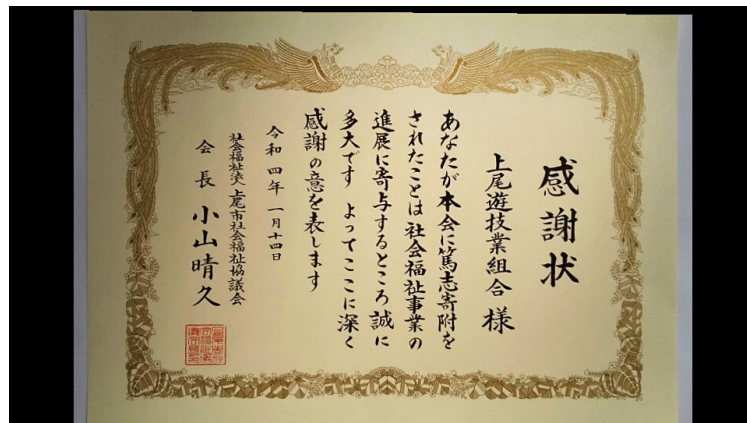 感謝状
上尾遊技業組合 様
あなたが本会に篤志寄附を
されたことは社会福祉事業の
進展に寄与するところ誠に
多大です よってここに深く
感謝の意を表します
令和四年一月十四日
社会福祉法人 上尾市社会福祉協議会
会長 小山晴久